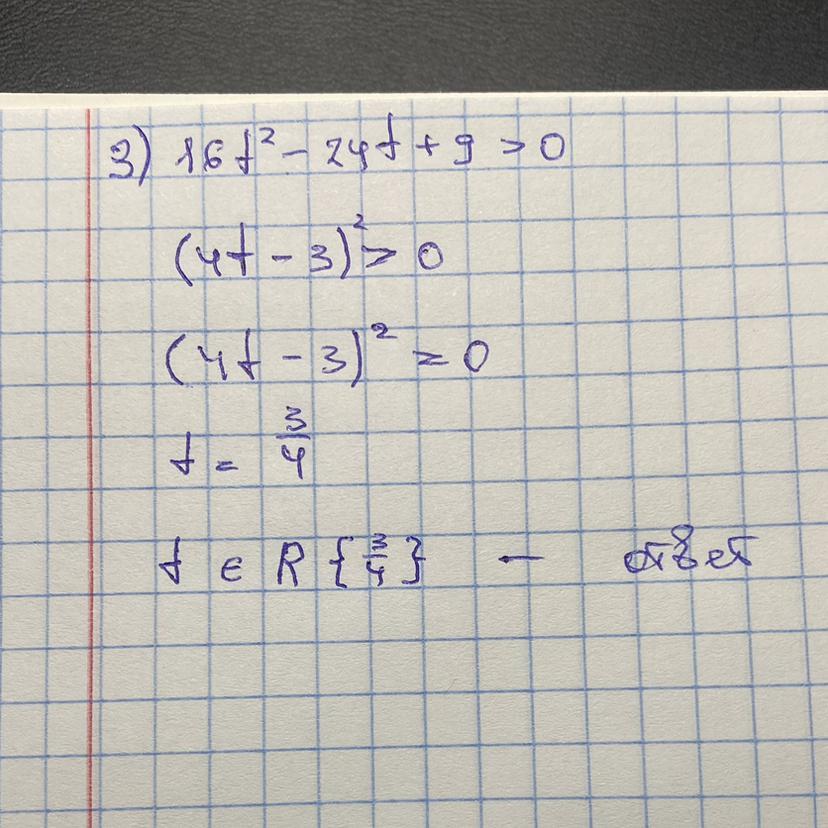 3) 16t² - 24t + 9 > 0
(4t - 3)² > 0
(4t - 3)² = 0
t = 3/4
t ∈ R {3/4} — ответ